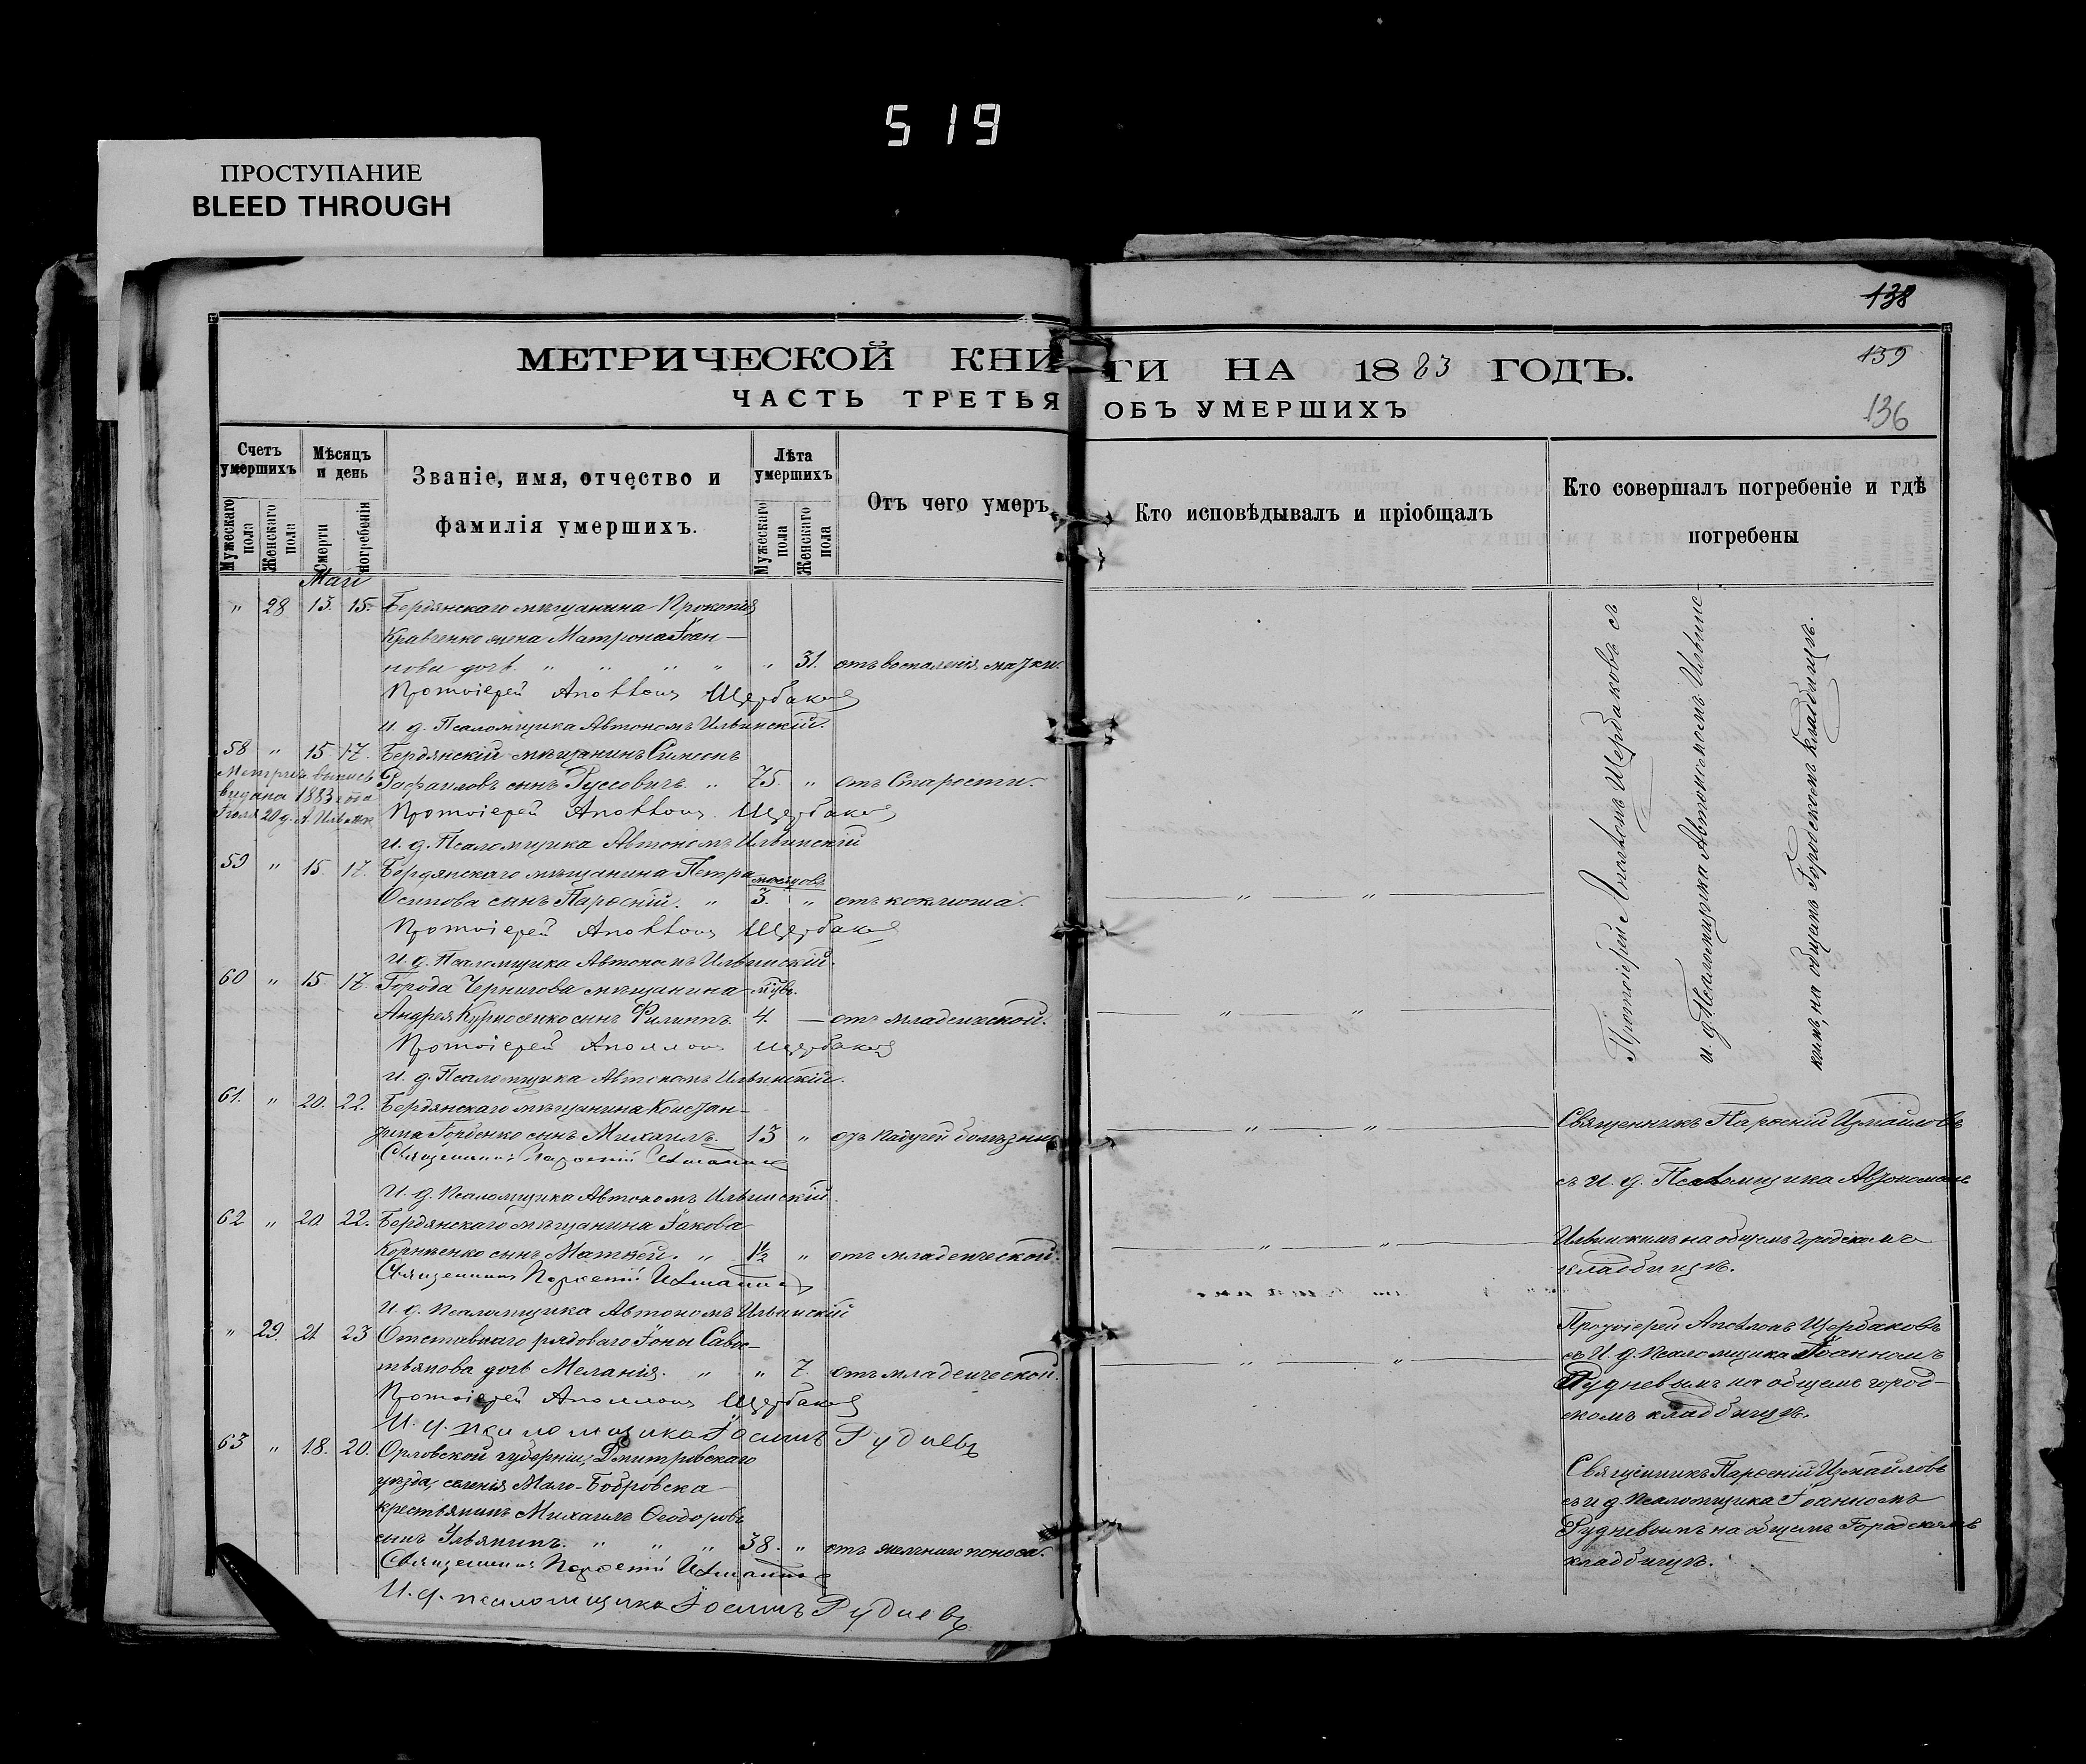 519
ПРОСТУПАНИЕ
BLEED THROUGH
138
139
136
МЕТРИЧЕСКОЙ КНИГИ НА 1883 ГОДЪ.
ЧАСТЬ ТРЕТЬЯ ОБЪ УМЕРШИХЪ
Счетъ умершихъ
Мужескаго пола
Женскаго пола
Мѣсяцъ и день
Смерти
погребенія
Званіе, имя, отчество и фамилія умершихъ.
Лѣта умершихъ
Мужескаго пола
Женскаго пола
Отъ чего умеръ
Кто исповѣдывалъ и пріобщалъ
Кто совершалъ погребеніе и гдѣ погребены
Май
" 28 13. 15. Бердянскаго мѣщанина Прокопія
Кравченко жена Матрона Іоан-
нова дочь. " " " " " 31. отъ воспаленія матки.
Протоіерей Аполлонъ Щербаковъ
И. д. Псаломщика Автономъ Ильинскій.
58 " 15 17. Бердянскій мѣщанинъ Симеонъ
Рафаиловъ сынъ Руссовичъ. " 75. " отъ Старости.
Метрич. выпись
выдана 1883 года
Іюля 20 д. А. Ильинск
Протоіерей Аполлонъ Щербаковъ
И. д. Псаломщика Автономъ Ильинскій
59 " 15. 17. Бердянскаго мѣщанина Петра мѣсяцовъ
Осипова сынъ Парѳеній. " 3. " отъ коклюша.
Протоіерей Аполлонъ Щербаковъ
И. д. Псаломщика Автономъ Ильинскій.
60 " 15. 17. Города Чернигова мѣщанина мѣсяцъ.
Андрея сынъ Филиппъ. 4. — отъ младенческой.
Протоіерей Аполлонъ Щербаковъ
И. д. Псаломщика Автономъ Ильинскій.
61. " 20. 22. Бердянскаго мѣщанина Констан-
тина Горбенко сынъ Михаилъ. 13 " отъ падучей болѣзни
Священникъ Парѳеній Измаиловъ
И. д. Псаломщика Автономъ Ильинскій.
62 " 20 22. Бердянскаго мѣщанина Іакова
Корнѣенко сынъ Матвей. " 1½ " отъ младенческой.
Священникъ Парѳеній Измаиловъ
И. д. Псаломщика Автономъ Ильинскій
" 29. 21 23 Отставнаго рядоваго Іоны Савос-
тьянова дочь Меланія. " " 7. отъ младенческой.
Протоіерей Аполлонъ Щербаковъ
И. д. псаломщика Іоаннъ Рудневъ
63 " 18. 20. Орловской губерніи, Дмитровскаго
уѣзда, селенія Мало-Бобровска
крестьянинъ Михаилъ Ѳеодоровъ
сынъ Ульянинъ. " " " 38. " отъ поноса.
Священникъ Парѳеній Измаиловъ
И. д. псаломщика Іоаннъ Рудневъ
Протоіерей Аполлонъ Щербаковъ съ
и. д. Псаломщика Автономомъ Ильинс-
кимъ, на общемъ Городскомъ кладбищѣ.
Священникъ Парѳеній Измаиловъ
съ И. д. Псаломщика Автономомъ
Ильинскимъ на общемъ городскомъ
кладбищѣ.
Протоіерей Аполлонъ Щербаковъ
съ И. д. Псаломщика Іоанномъ
Рудневымъ на общемъ город-
скомъ кладбищѣ.
Священникъ Парѳеній Измаиловъ
съ и. д. Псаломщика Іоанномъ
Рудневымъ на общемъ Городскомъ
кладбищѣ.